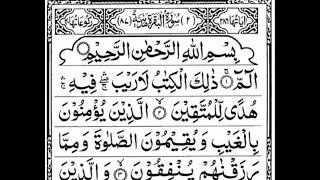 اٰيَاتُهَا ٢٨٦ (٢) سُوْرَةُ الْبَقَرَةِ مَدَنِيَّةٌ (٨٧) رُكُوْعَاتُهَا
بِسْمِ اللّٰهِ الرَّحْمٰنِ الرَّحِيْمِ
الٓمّٓ ۝١ ذٰلِكَ الْكِتٰبُ لَا رَيْبَ ۛ فِيْهِ ۛ
هُدًى لِّلْمُتَّقِيْنَ ۝٢ الَّذِيْنَ يُؤْمِنُوْنَ
بِالْغَيْبِ وَ يُقِيْمُوْنَ الصَّلٰوةَ وَ مِمَّا
رَزَقْنٰهُمْ يُنْفِقُوْنَ ۝٣ وَ الَّذِيْنَ